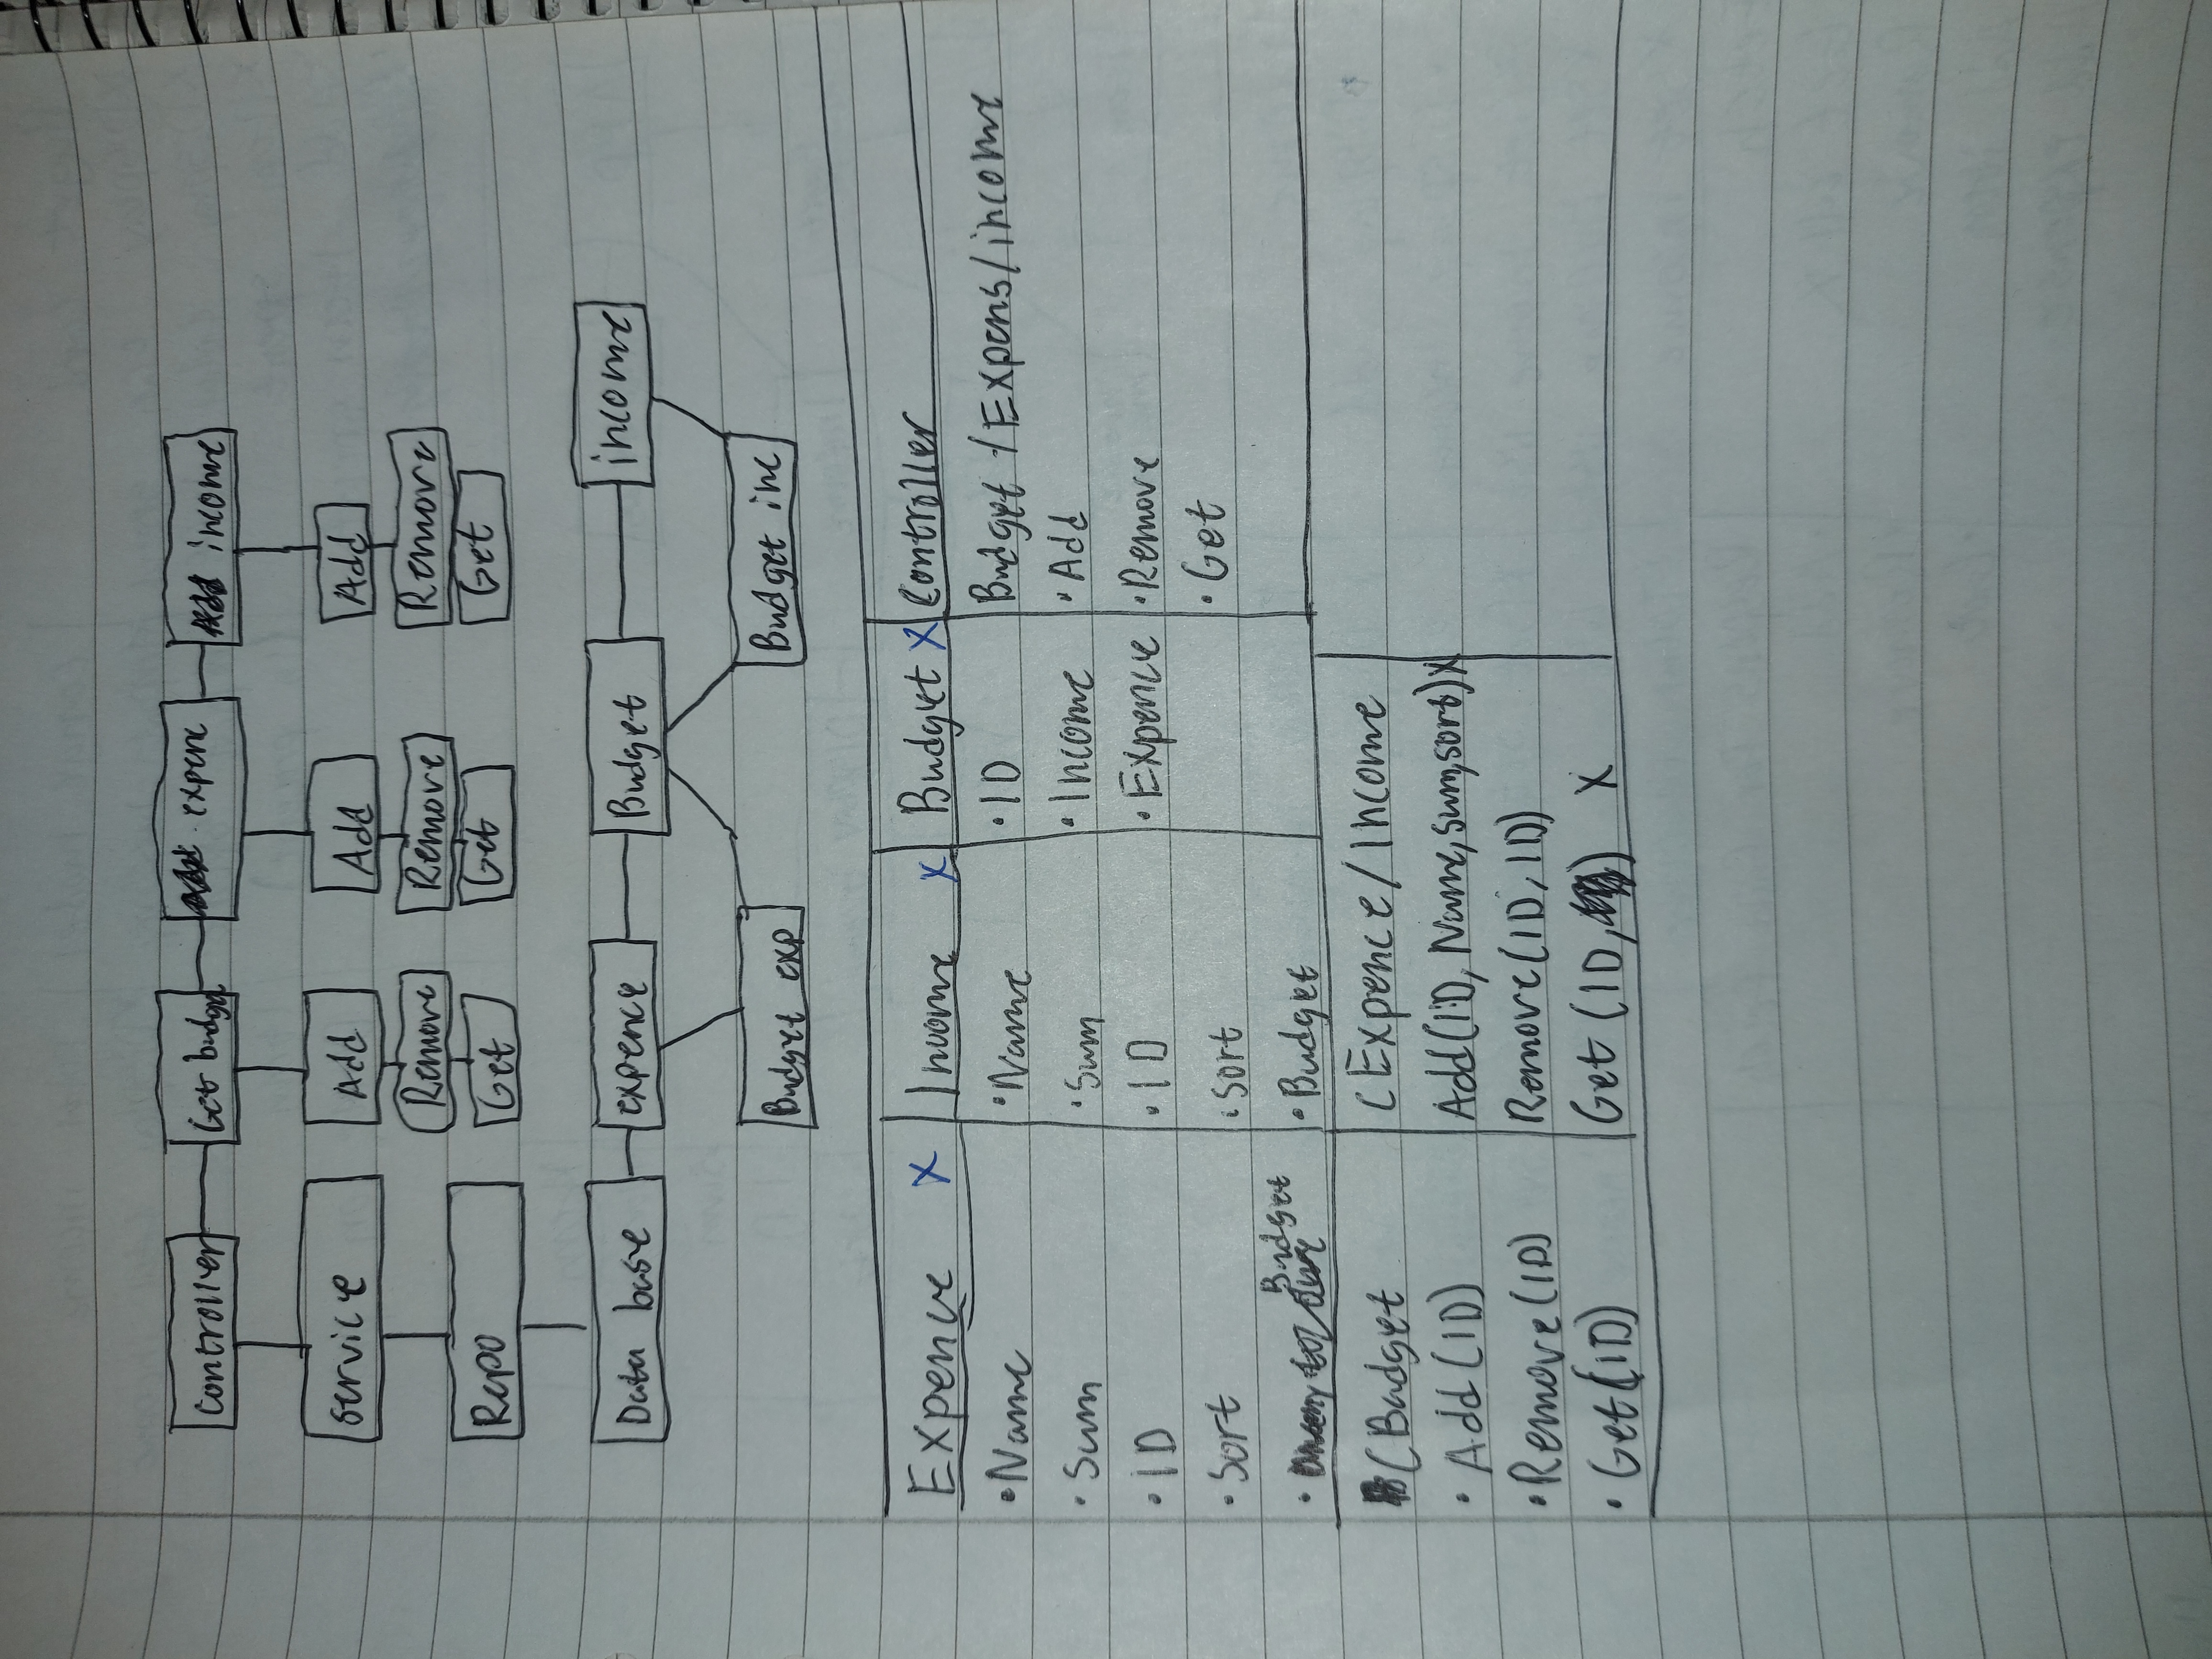 Controller Get budget expenc income
Service Add Add Add
Remove Remove Remove
Repo Get Get Get
Data base expence Budget income
Budget exp Budget inc
Expence X Income X Budget X Controller
•Name •Name •ID Budget /Expens/income
•Sum •Sum •Income •Add
•ID •ID •Expence •Remove
•Sort •Sort •Get
• Budget •Budget
(Budget (Expence/Income
• Add(ID) Add(ID, Name, sum, sort)X
•Remove(ID) Remove(ID, ID)
• Get(ID) Get (ID, ) X